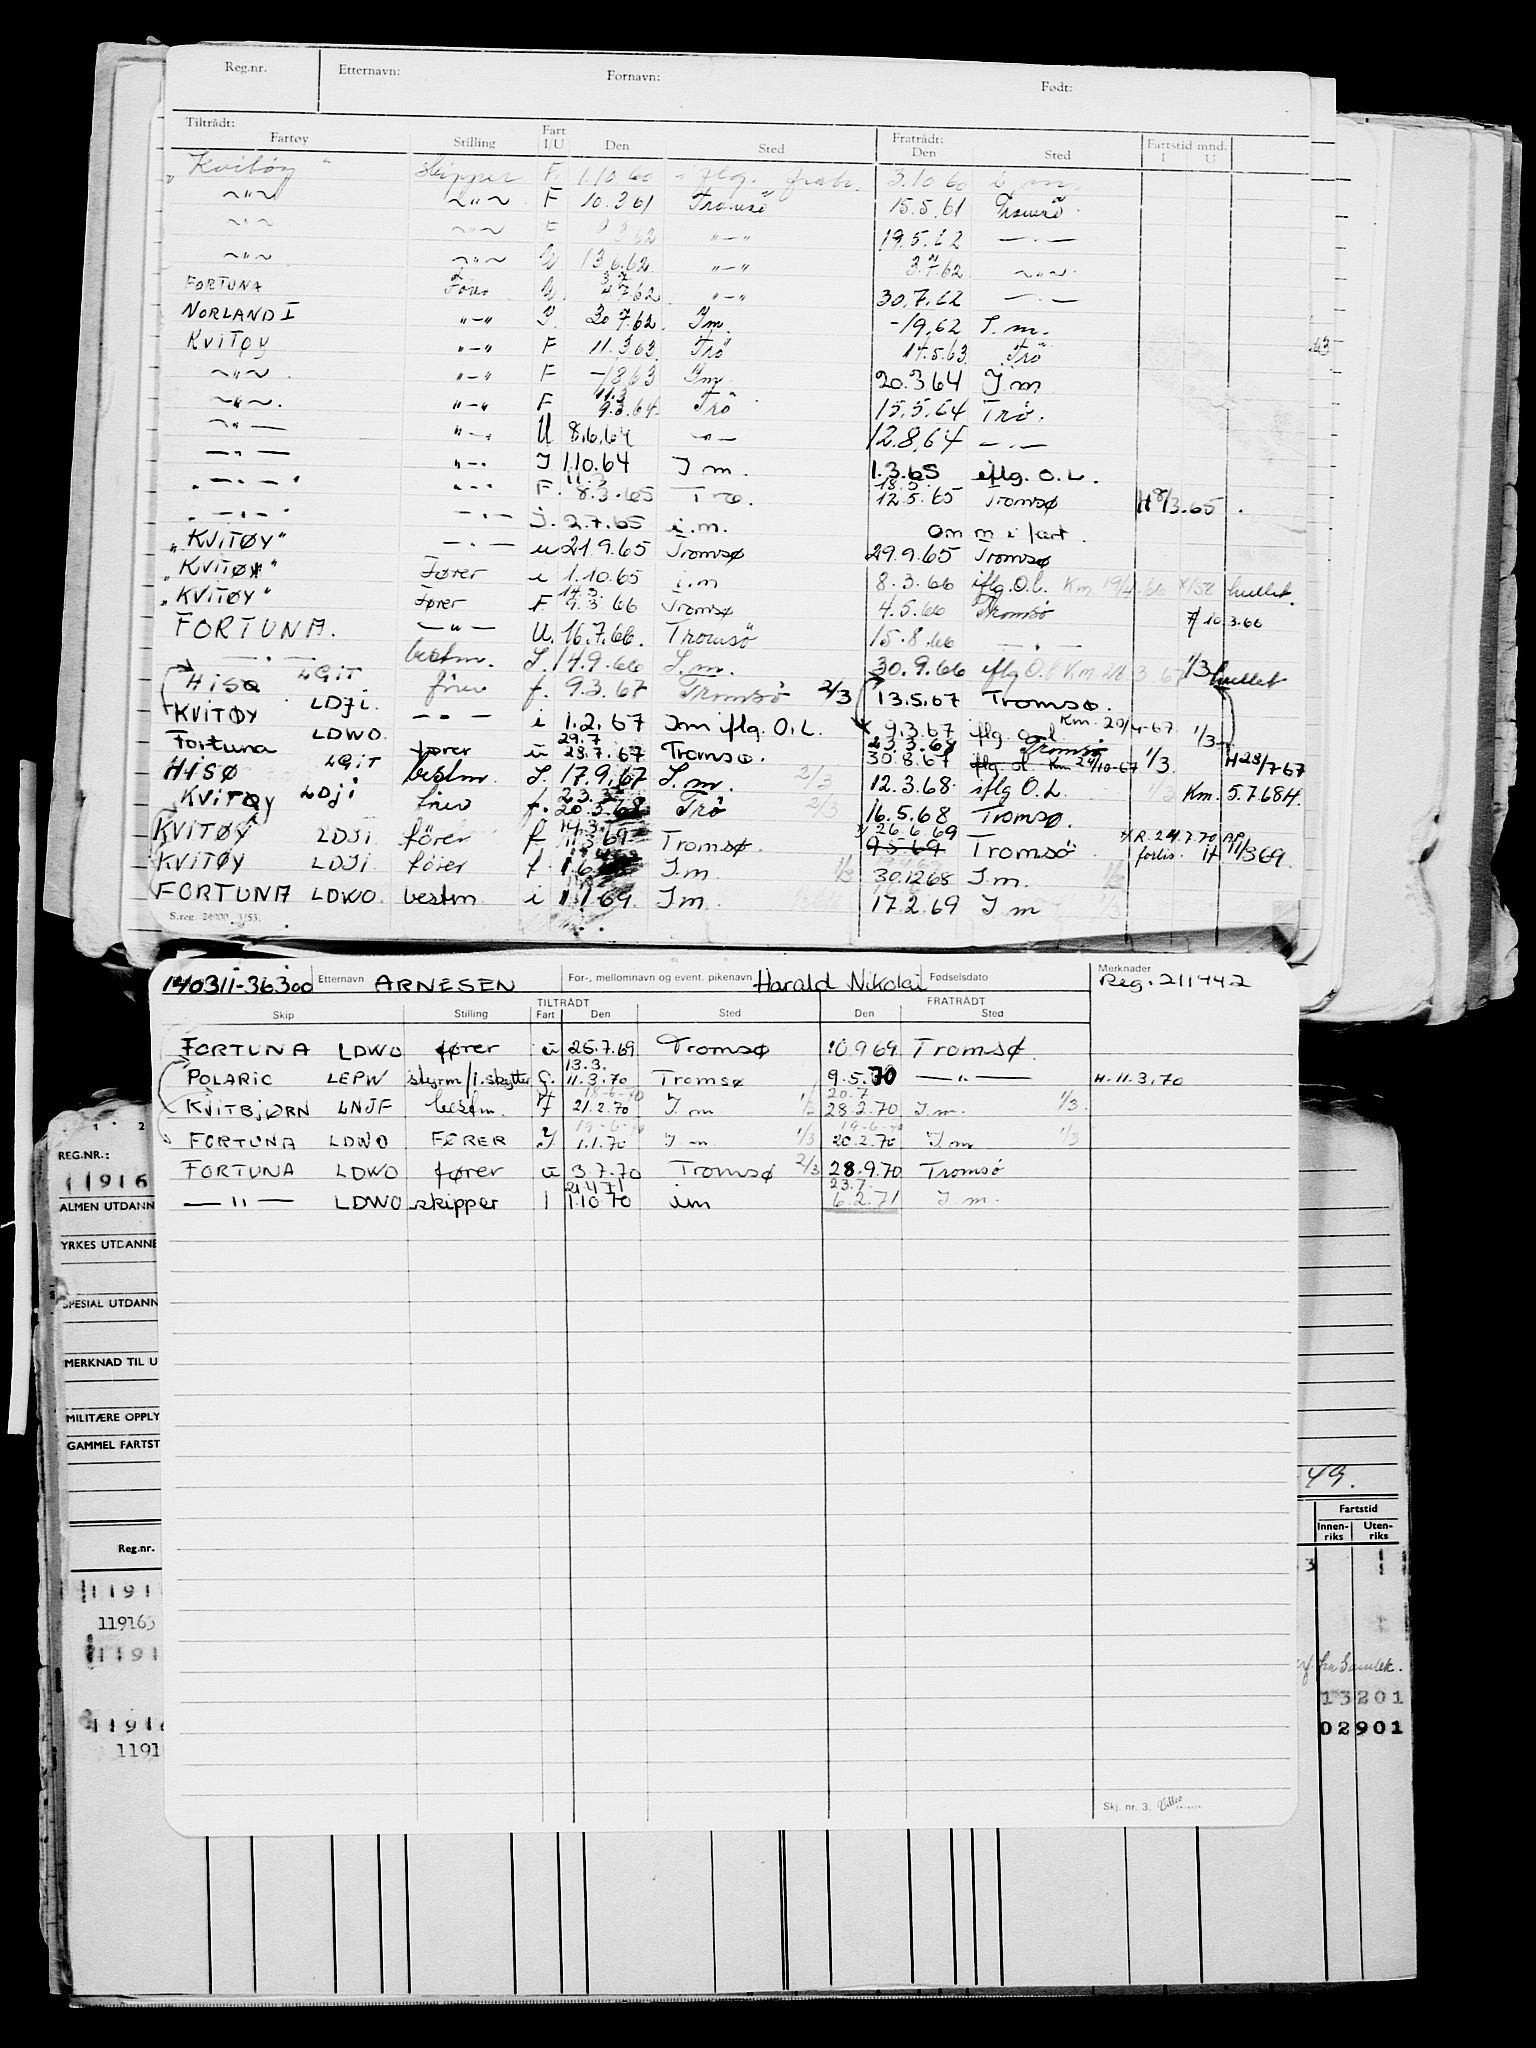 Reg.nr. Etternavn: Fornavn: Født:
Tiltrådt: Fratrådt:
Fartøy Stilling Fart I/U Den Sted Den Sted Fartstid mnd. I U
„Kvitöy" skipper F. 1.10.60 i flg. 3.10.60 i m.
~"~ ~"~ F 10.3.61 Tromsö 15.5.61 Tromsö.
~"~ ~"~ F 3.62 "-" 19.5.62 —.—
~"~ ~"~ U. 13.6.62. "-" 3.7.62 ~"~.
FORTUNA Förer U. 4.7.62 "-" 30.7.62 —.—
NORLAND I "-" I. 30.7.62. Im. -/9.62 I.m.
KVITØY "-" F 11.3.63. Trö 14.5.63. Trö
~"~. "-" F -/8.63 Im. 20.3.64 I.m
~"~. "-" F 11.3 9.3.64. Trö 15.5.64 Trö.
~"— "-. U 8.6.64 -"- 12.8.64 —.—
—"— "-. I 1.10.64 I m. 1.3.65 iflg. O.L.
"—.—" "-" F. 11.3 8.3.65 Trø. 18.5. 12.5.65 Tromsø H 8/3.65.
"—.—" —.— i. 2.7.65 i.m. om m i fart.
„KVITØY" —.— u 21.9.65 Tromsø 29.9.65 Tromsø
„KVITØY" Fører i 1.10.65 i.m 8.3.66 iflg.O.L. Km 19/4.66 hullet.
„KVITØY" fører F 14.3. 9.3.66 Tromsø 4.5.66 Tromsö H 10.3.66
FORTUNA. —"— U. 16.7.66. Tromsö 15.8.66 —.—
—.— bestm. I. 14.9.66 I.m. 30.9.66 iflg O.L Km 28.3.67 1/3 hullet
HISØ LGIT förer f. 9.3.67 Tromsö 2/3 13.5.67 Tromsø.
KVITØY LDJI. —"— i 1.2.67 Im iflg. O.L. 9.3.67 iflg. o.l. Km. 20/4-67. 1/3
Fortuna LDWO. fører u 29.7 28.7.67 Tromsø. 23.3.67 30.8.67 Tromsø iflg. ol. Km 24/10-67 1/3. H 28/7-67
HISØ LGIT bestm. I. 17.9.67 I.m. 2/3 12.3.68. iflg O.L. 1/3 Km. 5.7.68 H.
KVITØY LDJI förer f. 23.3. 20.3.68 Trö 2/3 16.5.68 Tromsø.
KVITØY LDJI. förer f 14.3. 11.3.69 Tromsø. 26.6.69 9.5.69 Tromsö. R. 24.7.70 AP forlis. H 11/3 69.
KVITØY LDJI. föier f 1.6. I.m. 1/3 30.12.68 I.m.
FORTUNA LDWO. bestm i 1.1.69. Im. 17.2.69 I.m 1/3
S.reg. 24000. 3/53.
140311-36300 Etternavn ARNESEN For-, mellomnavn og event. pikenavn Harald Nikolai Fødselsdato Merknader Reg. 211942
TILTRÅDT FRATRÅDT
Skip Stilling Fart Den Sted Den Sted
FORTUNA LDWO fører u 25.7.69 Tromsø 10.9.69 Tromsø.
POLARIC LEPW styrm/1.skytter f. 13.3. 11.3.70 Tromsø 9.5.70 —"— H. 11.3.70
KVITBJØRN LNJF bestm. f 18-6-70 21.2.70 I.m 1/2 20.7 28.2.70 I.m. 1/3
FORTUNA LDWO FØRER I 19-6-70 1.1.70 I m 1/3 19-6-70 20.2.70 I.m 1/3
FORTUNA LDWO fører u 3.7.70 Tromsø 2/3 28.9.70 Tromsö
—"— LDWO skipper I 21.4.71 1.10.70 im 23.7. 6.2.71 I.m.
REG.NR.:
11916
ALMEN UTDANN
YRKES UTDANNE
SPESIAL UTDANN
MERKNAD TIL U
MILITÆRE OPPLY
GAMMEL FARTST
49.
Reg.nr. Fartstid
Innen-riks Uten-riks
1191
119165
1191
fra Samlek.
13201
1191
02901
1191
Skj. nr. 3.